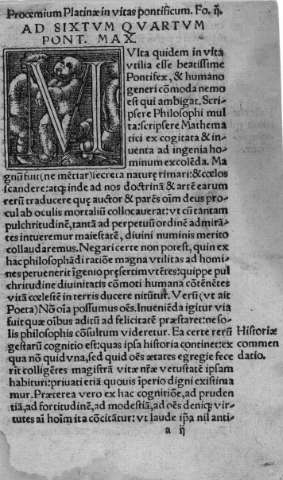 Prooemium Platinæ in vitas pontificum. Fo. ij.
AD SIXTVM QVARTVM
PONT. MAX.
MVlta quidem in vita
vtilia esse beatissime
Pontifex, & humano
generi cōmoda nemo
est qui ambigat. Scri-
psere Philosophi mul
ta: scripsere Mathema
tici ex cogitara & in-
uenta ad ingenia ho-
minum excolēda. Ma
gnū fuit (ne mētiar) secreta naturę rimari: & cœlos
scandere: atq; inde ad nos doctrinā & artē earum
rerū traducere quę auctor & parēs oīm deus pro-
cul ab oculis mortaliū collocauerat: vt cū tantam
pulchritudinē, tantā ad perpetuū ordinē admirā-
tes intueremur maiestatē, diuini numinis merito
collaudaremus. Negari certe non potest, quin ex
hac philosophādi ratiōe magna vtilitas ad homi-
nes peruenerit īgenio prēsertim vtētes: quippe pul
chritudine diuinitatis cōmoti humana cōtēnētes
vitā cœlestē in terris ducere nitūtur. Verū (vt ait
Poeta) Nō oīa possumus oēs. Inueniēda igitur via
fuit quæ oībus aditū ad felicitatē præstaret: ne so-
lis philosophis cōsultum videretur. Ea certe rerū
gestarū cognitio est: quas ipsa historia continet: ex
qua nō quid vna, sed quid oēs ætates egregie fece
rit colligētes magistrā vitæ nr̄æ vetustatē ipsam
habituri: priuati etiā quouis īperio digni existima
mur. Præterea vero ex hac cognitiōe, ad pruden
tiā, ad fortitudinē, ad modestiā, ad oēs deniq; vir-
tutes aī hoīm ita cōcitātur: vt laude ipa nil anti-
Historiæ
commen
datio.
a ij